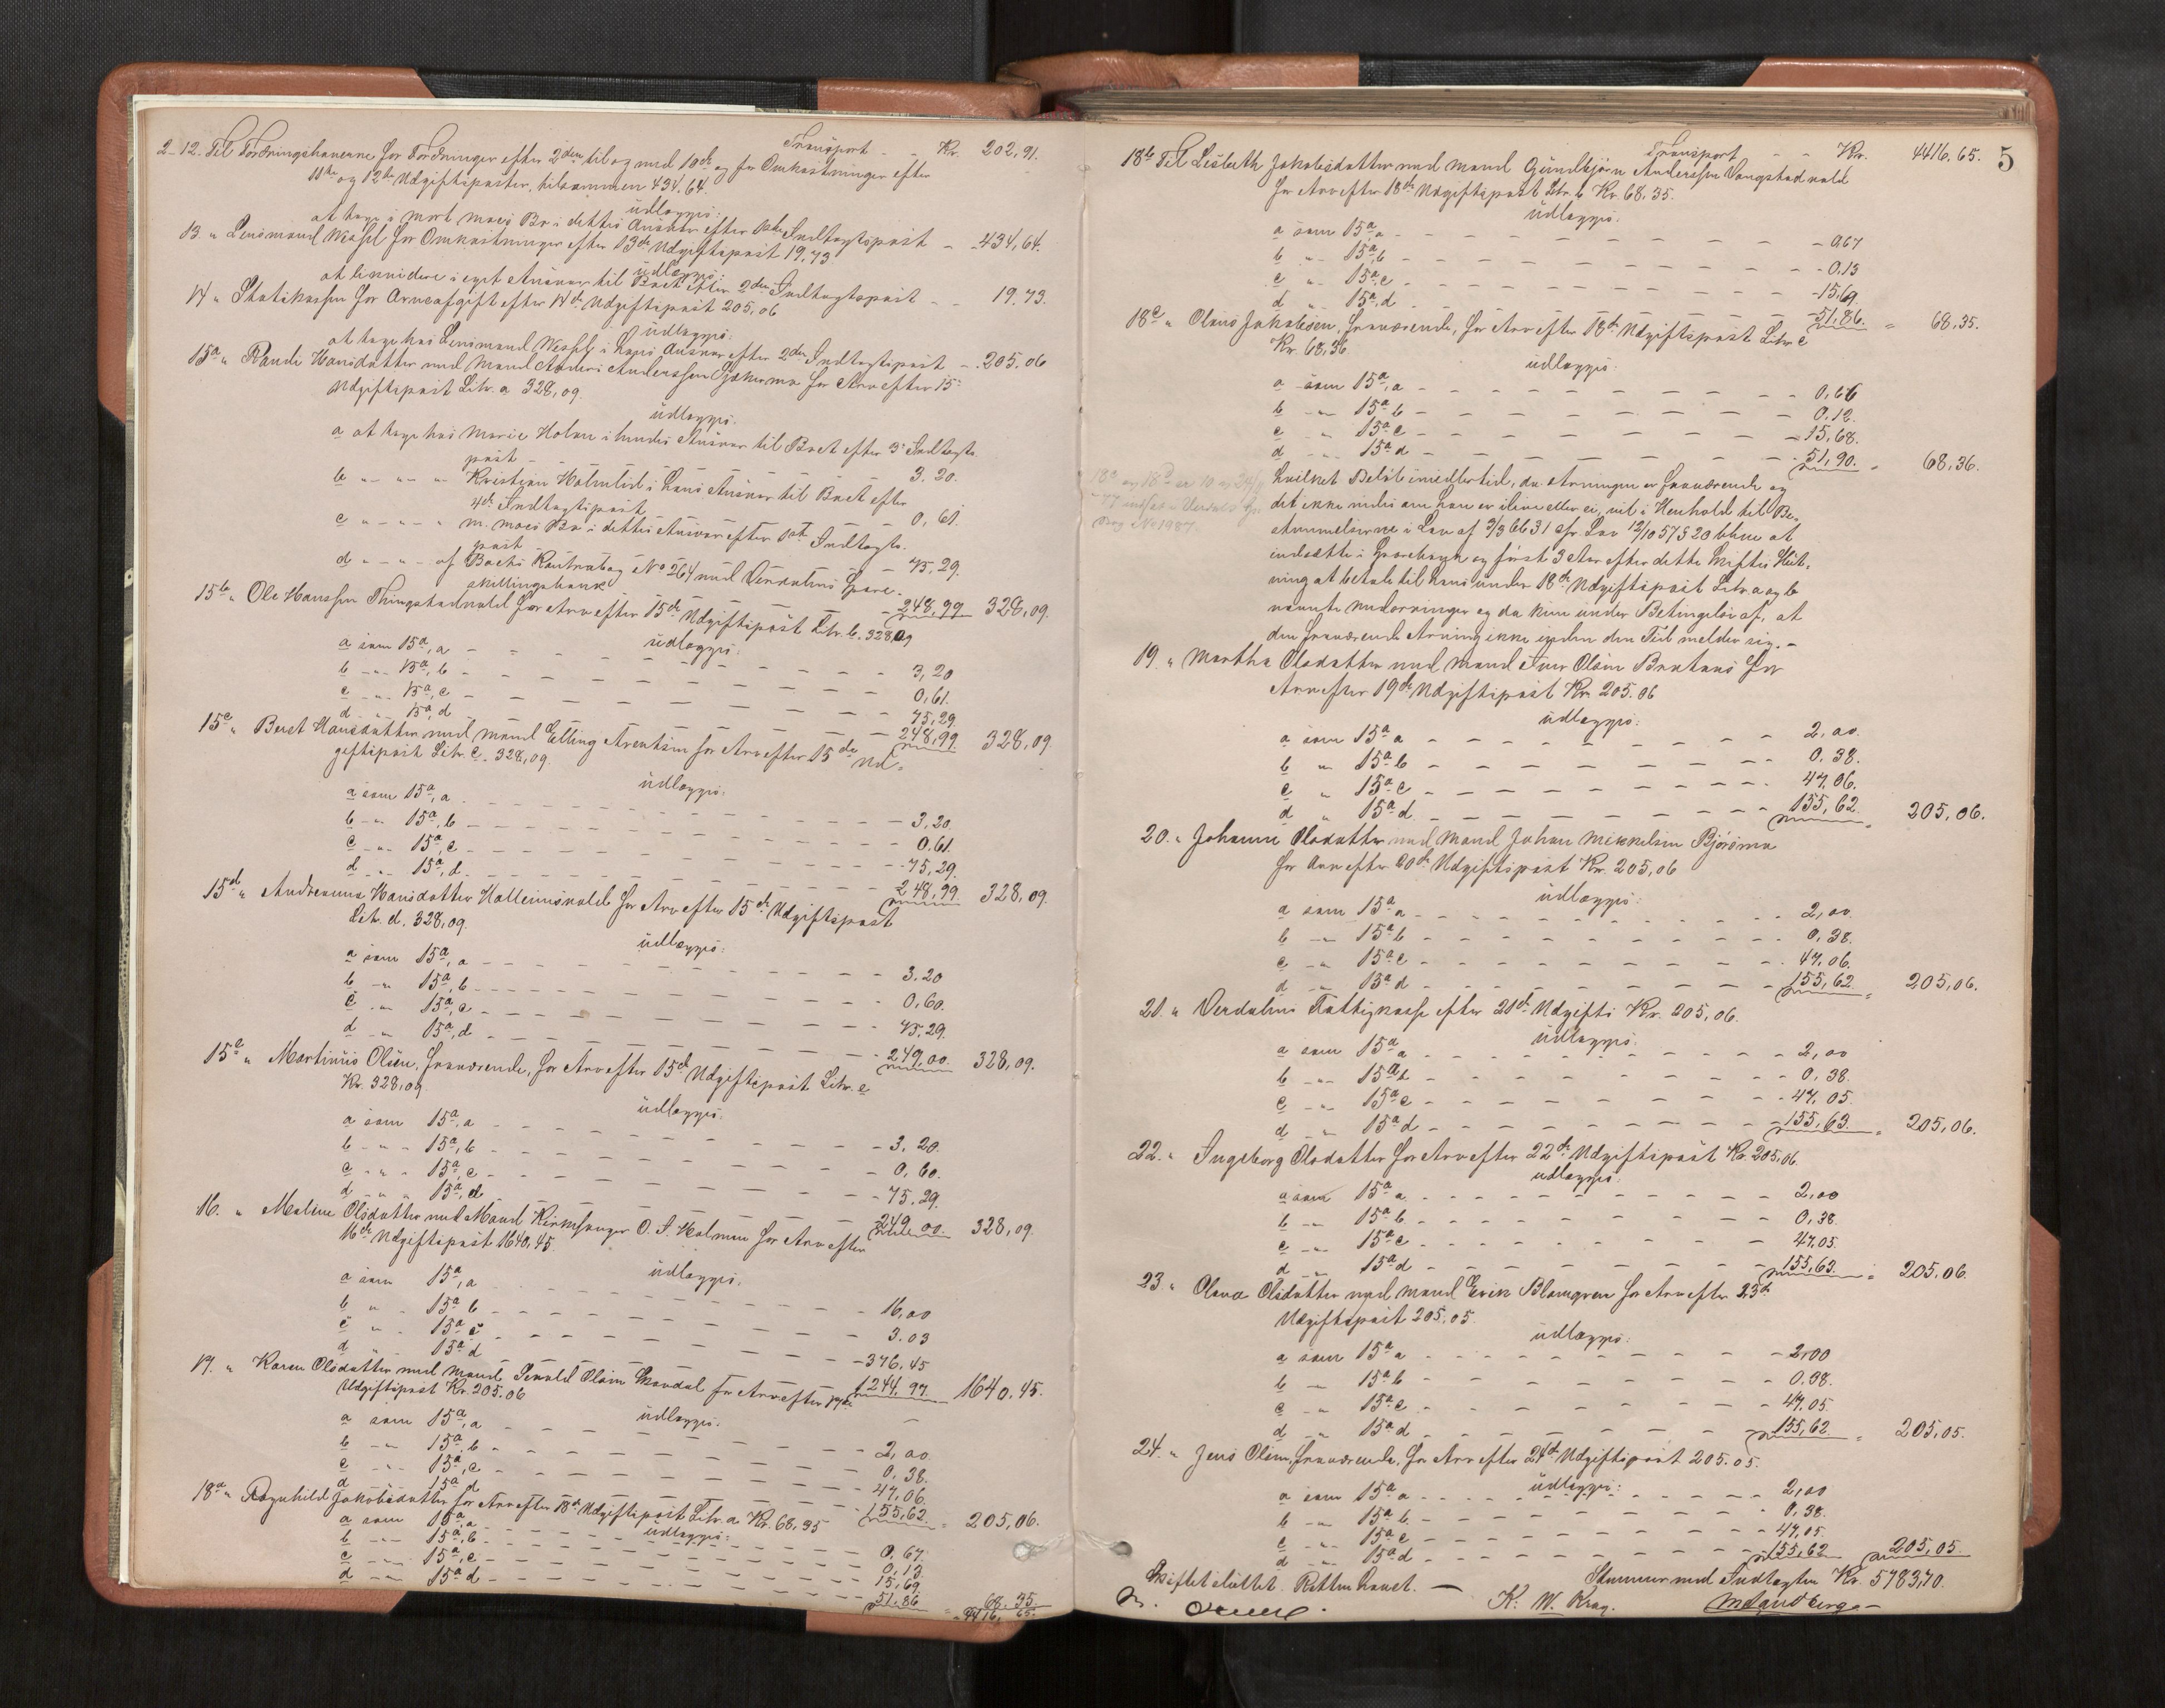 Transport - - Kr. 202,91.
2-12. Til Fordringshaverne for Fordringer efter 2den til og med 10de og for Omkostninger efter
11te og 12te Udgiftsposter, tilsammen 434.64.
udlægges:
at tage i mort. maes Bo i dettes Ansvar efter 1ste Indtægtspost - - 434,64.
13. " Lensmand Wessel for Omkostninger efter 13de Udgiftspost 19,73
udlægges:
at liqvidere i eget Ansvar til Boet efter 2den Indtægtspost - - 19.73.
14 " Statskassen for Arveafgift efter 14de Udgiftspost 205,06
udlægges:
at tage hos Lensmand Wessel i hans Ansvar efter 2den Indtægtspost - - 205.06
15a " Randi Hansdatter med Mand Anders Anderssen for Arv efter 15.
Udgiftspost Litr. a 328,09.
udlægges.
a at tage hos Marie Holme i hendes Ansvar til Boet efter 3. Indtægts
post - - 3.20.
b " " " Kristian Holmlid i hans Ansvar til Boet efter
4de Indtægtspost - - 0,61.
c " " " m. maes Bo i dettes Ansvar efter 1ste Indtægts-
post - - 75,29.
d " " af Boets Kontrabog No 264 med Verdalens Spare-
skillingsbank - 248,99 328,09.
15b " Ole Hanssen Thingstadvald for Arv efter 15de Udgiftspost Litr. b. 328,09
udlægges:
a som 15a, a - - 3,20
b " 15a, b - - 0,61.
c " 15a, c - - 75,29.
d " 15a, d - - 248,99. 328,09.
15c " Berit Hansdatter med Mand Elling Arentsen for Arv efter 15de Ud-
giftspost Litr. c. 328,09.
udlægges:
a som 15a, a - - 3,20.
b " 15a, b - - 0.61.
c " 15a, c - - 75,29.
d " 15a, d. - - 248,99. 328,09.
15d " Andreanna Hansdatter Hallemsvald for Arv efter 15de Udgiftspost
Litr. d. 328,09.
udlægges:
a som 15a, a - - 3.20
b " 15a, b - - 0,60.
c " 15a, c - - 75,29.
d " 15a, d - - 249,00. 328,09.
15e " Martinus Olsen, fraværende, for Arv efter 15de Udgiftspost Litr. e
Kr. 328,09.
udlægges.
a som 15a, a - - 3,20.
b " 15a, b - - 0,60.
c " 15a, c - - 75,29.
d " 15a, d - - 249,00. 328,09.
16. " Maline Olsdatter med Mand Kirkesanger O. S. Holmen for Arv efter
16de Udgiftspost 1640,45
udlægges.
a som 15a, a - - 16,00
b " 15a b - - 3.03
c " 15a c - - 376.45
d 15a d - - 1244,97 1640.45.
17. " Karen Olsdatter med Mand Olsen for Arv efter 17de
Udgiftspost Kr. 205.06
udlægges.
a som 15a, a - - 2,00
b " 15a, b - - 0,38.
c " 15a, c - - 47,06.
d 15a d - - 155,62. 205,06.
18a " Ragnhild Jakobsdatter for Arv efter 18de Udgiftspost Litr. a Kr. 68,35
udlægges:
a som 15a, a - - 0,67.
b " 15a, b - - 0,13.
c " 15a, c - - 15,69.
d " 15a d - - 51.86 68.35
4416,65.
5
Transport - - Kr. 4416.65.
18b Til Lisbeth Jakobsdatter med Mand Gundbjørn Anderssen Vangstadvald
for Arv efter 18de Udgiftspost Litr. b Kr. 68,35.
udlægges.
a som 15a, a - - 0,67
b " 15a, b - - 0,13
c " 15a, c - - 15,69.
d " 15a, d - - 51,86. 68,35.
18c " Olaus Jakobsen, fraværende, for Arv efter 18de Udgiftspost Litr. c
Kr. 68,36
udlægges.
a som 15a, a - - 0,66
b " 15a b - - 0.12.
c " 15a c - - 15,68.
d " 15a d - - 51,90. 68,36.
hvilket Beløb imidlertid, da Arvingen er fraværende og
det ikke vides om han er ilive eller ei, vil i Henhold til Be-
stemmelserne i Lov af 3/3 66 § 1 cfr. Lov 12/10 57 § 20 blive at
indsætte i Sparebank og først 3 Aar efter dette Skiftes Slut-
ning at betale til hans under 18de Udgiftspost Litr. a og b
nævnte Medarvinger og da kun under Betingelse af, at
den fraværende Arving ikke inden den Tid melder sig. -
19. " Martha Olsdatter med Mand Iver Olsen for
Arv efter 19de Udgiftspost Kr. 205.06
udlægges:
a som 15a a - - 2,00.
b " 15a b - - 0,38.
c " 15a c - - 47,06.
d " 15a d. - - 155,62. 205,06.
20. " Johanna Olsdatter med Mand Johan Mikkelsen
for Arv efter 20de Udgiftspost Kr. 205,06
udlægges:
a som 15a a - - 2,00.
b " 15a b - - 0,38.
c " 15a c - - 47,06.
d " 15a d - - 155,62. 205,06.
21. " Verdalens Fattigkasse efter 21de Udgifts Kr. 205,06.
udlægges.
a som 15a a - - 2,00
b " 15a b - - 0,38.
c " 15a c - - 47,05.
d " 15a d - - 155,63. 205,06.
22. " Ingeborg Olsdatter for Arv efter 22de Udgiftspost Kr. 205,06.
udlægges.
a som 15a a - - 2,00
b " 15a b - - 0,38.
c " 15a c - - 47.05.
d " 15a d - - 155,63. 205,06.
23. " Olava Olsdatter med Mand Erik Blomgren for Arv efter 23de
Udgiftspost 205,05.
udlægges:
a som 15a a - - 2,00
b " 15a b - - 0.38.
c " 15a c - - 47.05
d " 15a d - - 155,62 205,05.
24. " Jens Olsen, fraværende, for Arv efter 24de Udgiftspost 205.05.
udlægges:
a som 15a a - - 2,00
b " 15a b. - - 0,38.
c " 15a c - - 47,05.
d " 15a d - - 155,62 205,05.
Stemmer med Indtægten Kr. 5783,70.
Skiftet sluttet. Retten hævet. -
K. W. Krag.